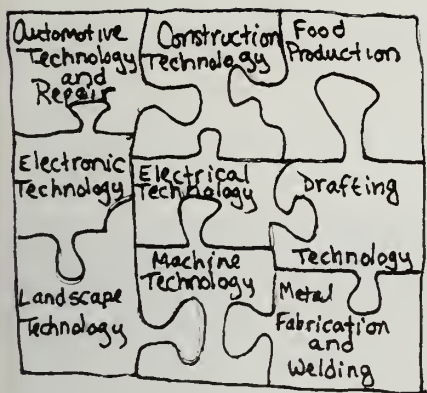 Automotive
Technology
and
Repair
Construction
Technology
Food
Production
Electronic
Technology
Electrical
Technology
Drafting
Technology
Landscape
Technology
Machine
Technology
Metal
Fabrication
and
Welding